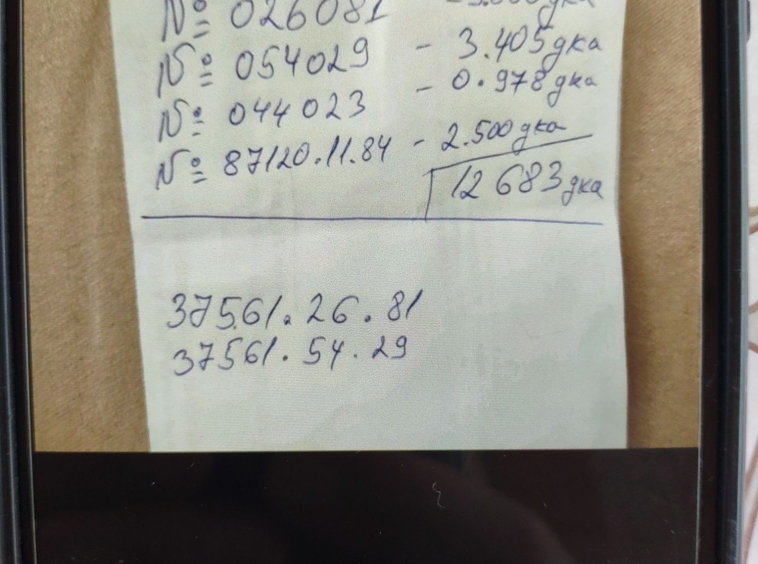 № 026081
№ 054029 - 3.405 дка
№ 044023 - 0.978 дка
№ 87120.11.84 - 2.500 дка
12 683 дка
37561.26.81
37561.54.29